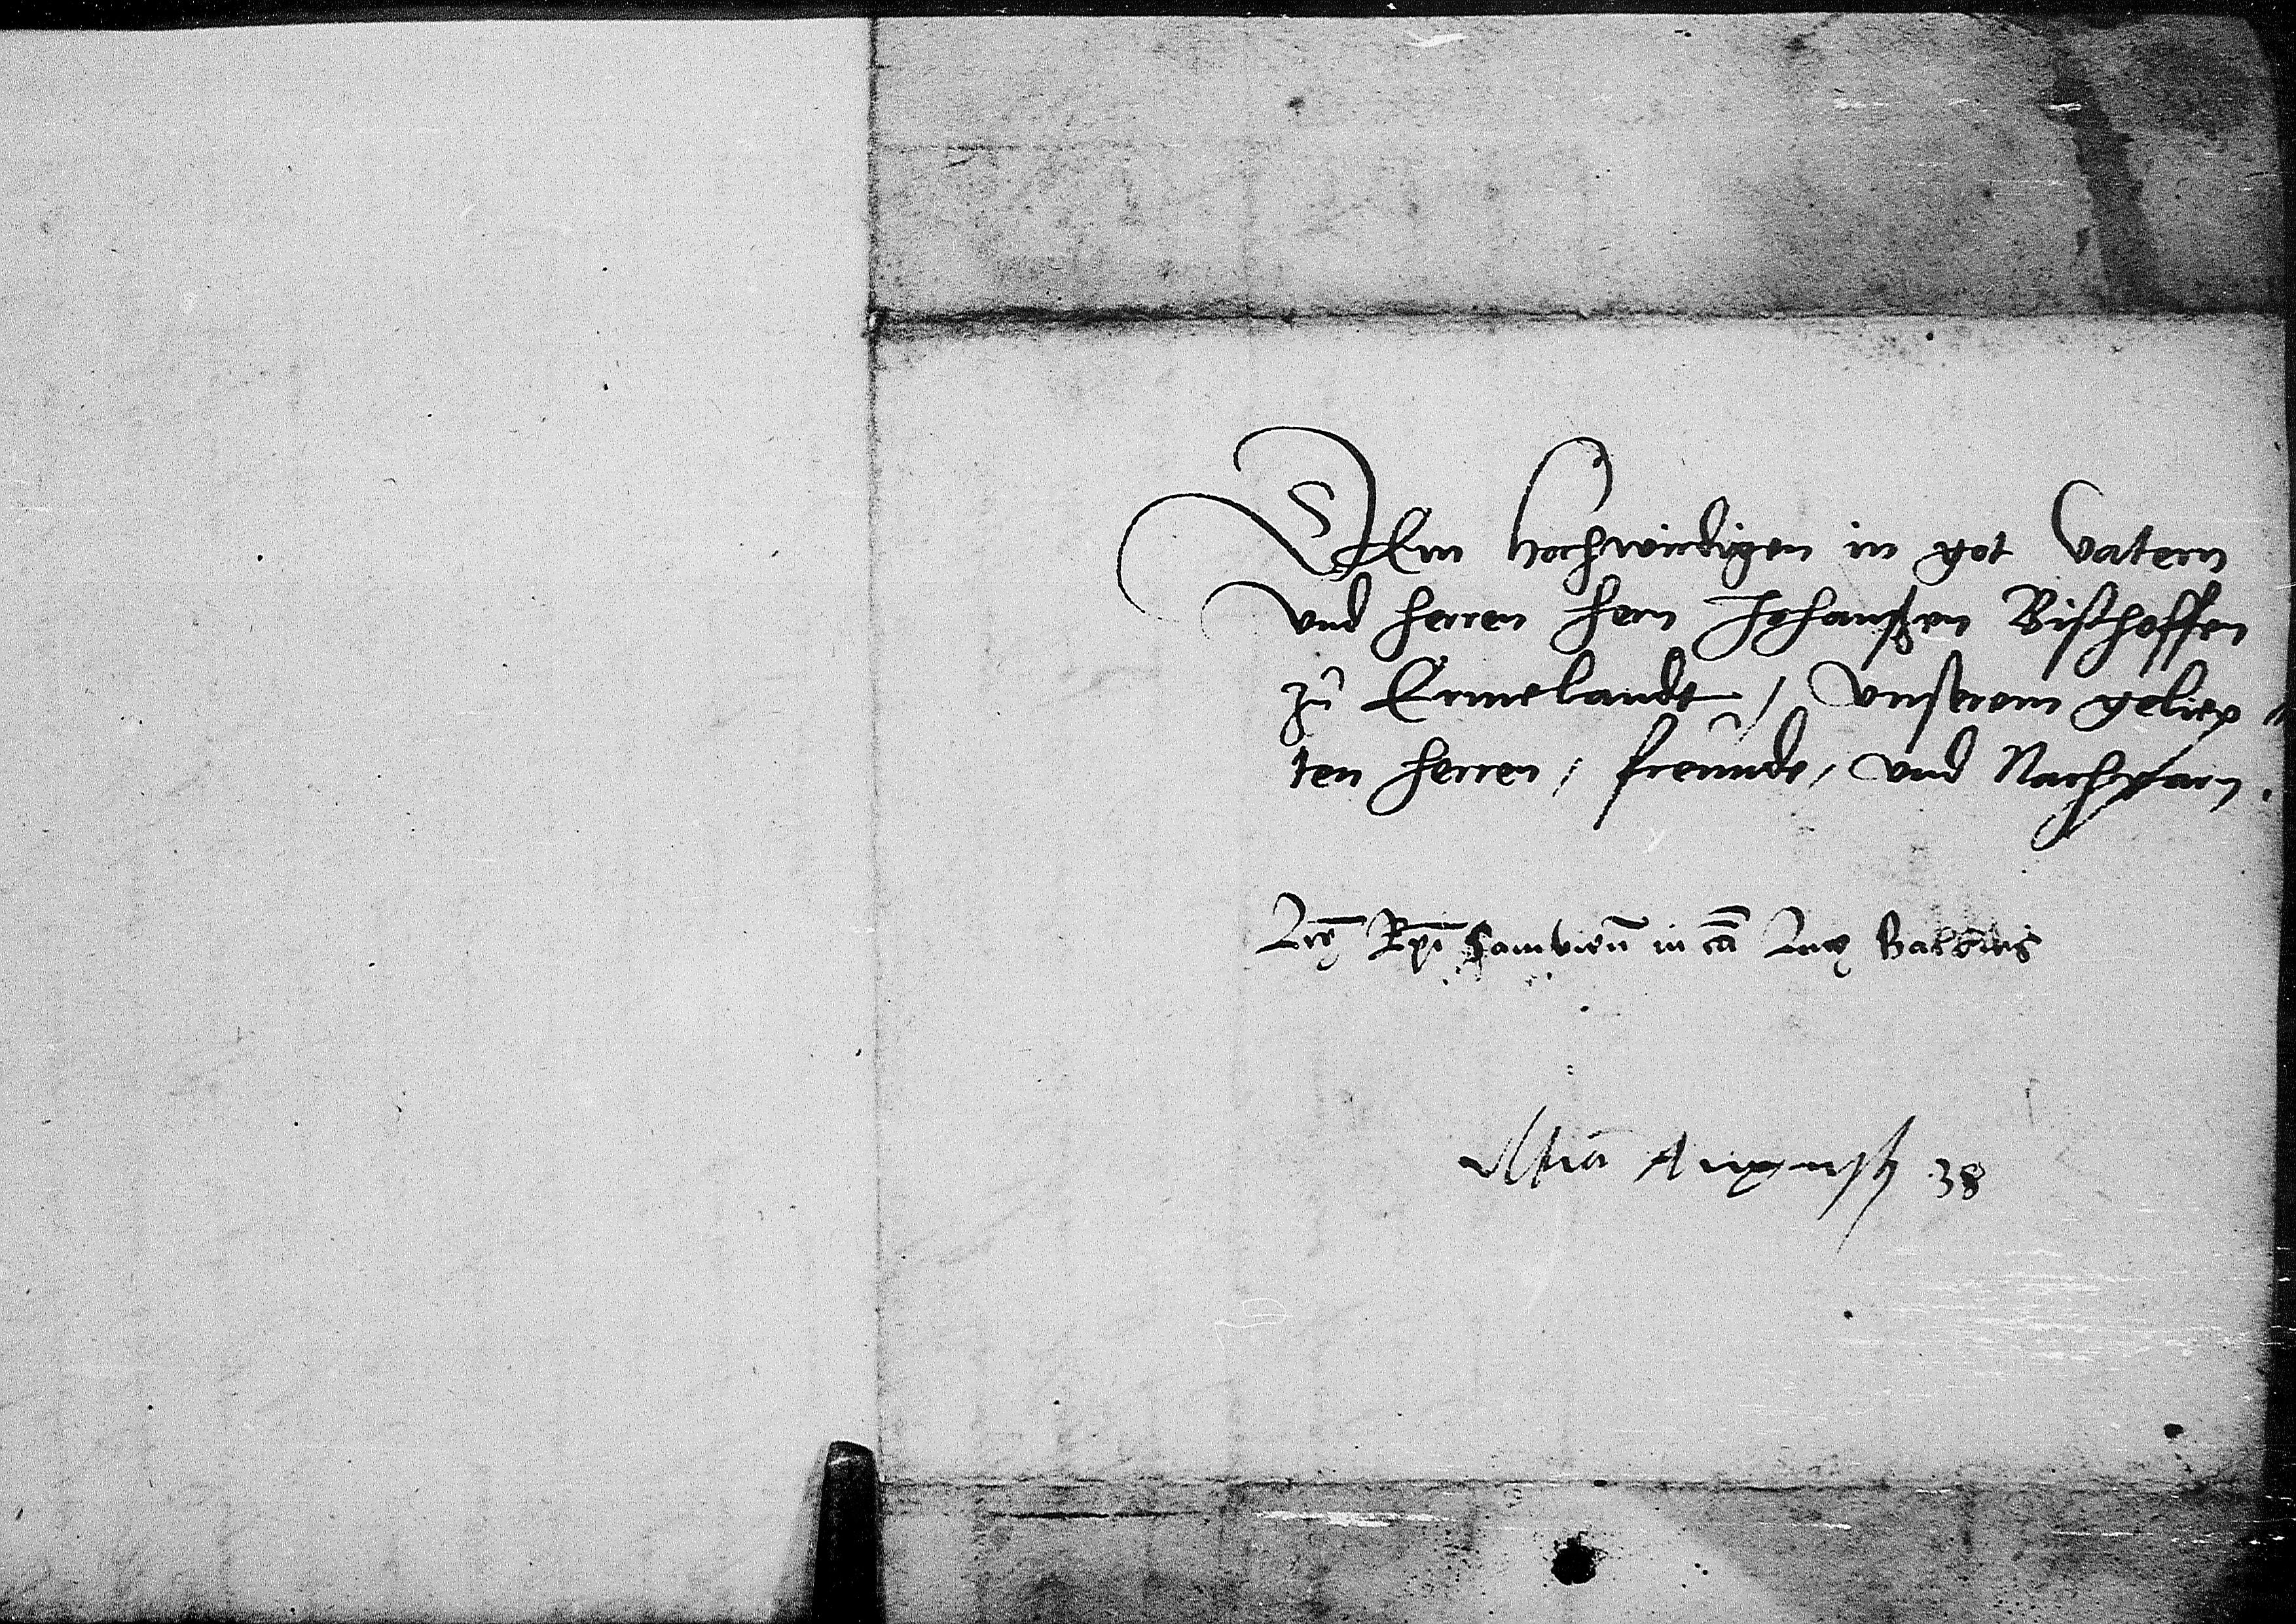 Dem hochwirdigen in got vatern
und herren hern Johanßen Bischoffen
zů Ermelandt / unserem geliep=
ten herren / freunde / und Nachparn.
Sambien̄ in cā
ultīa Augusti 38